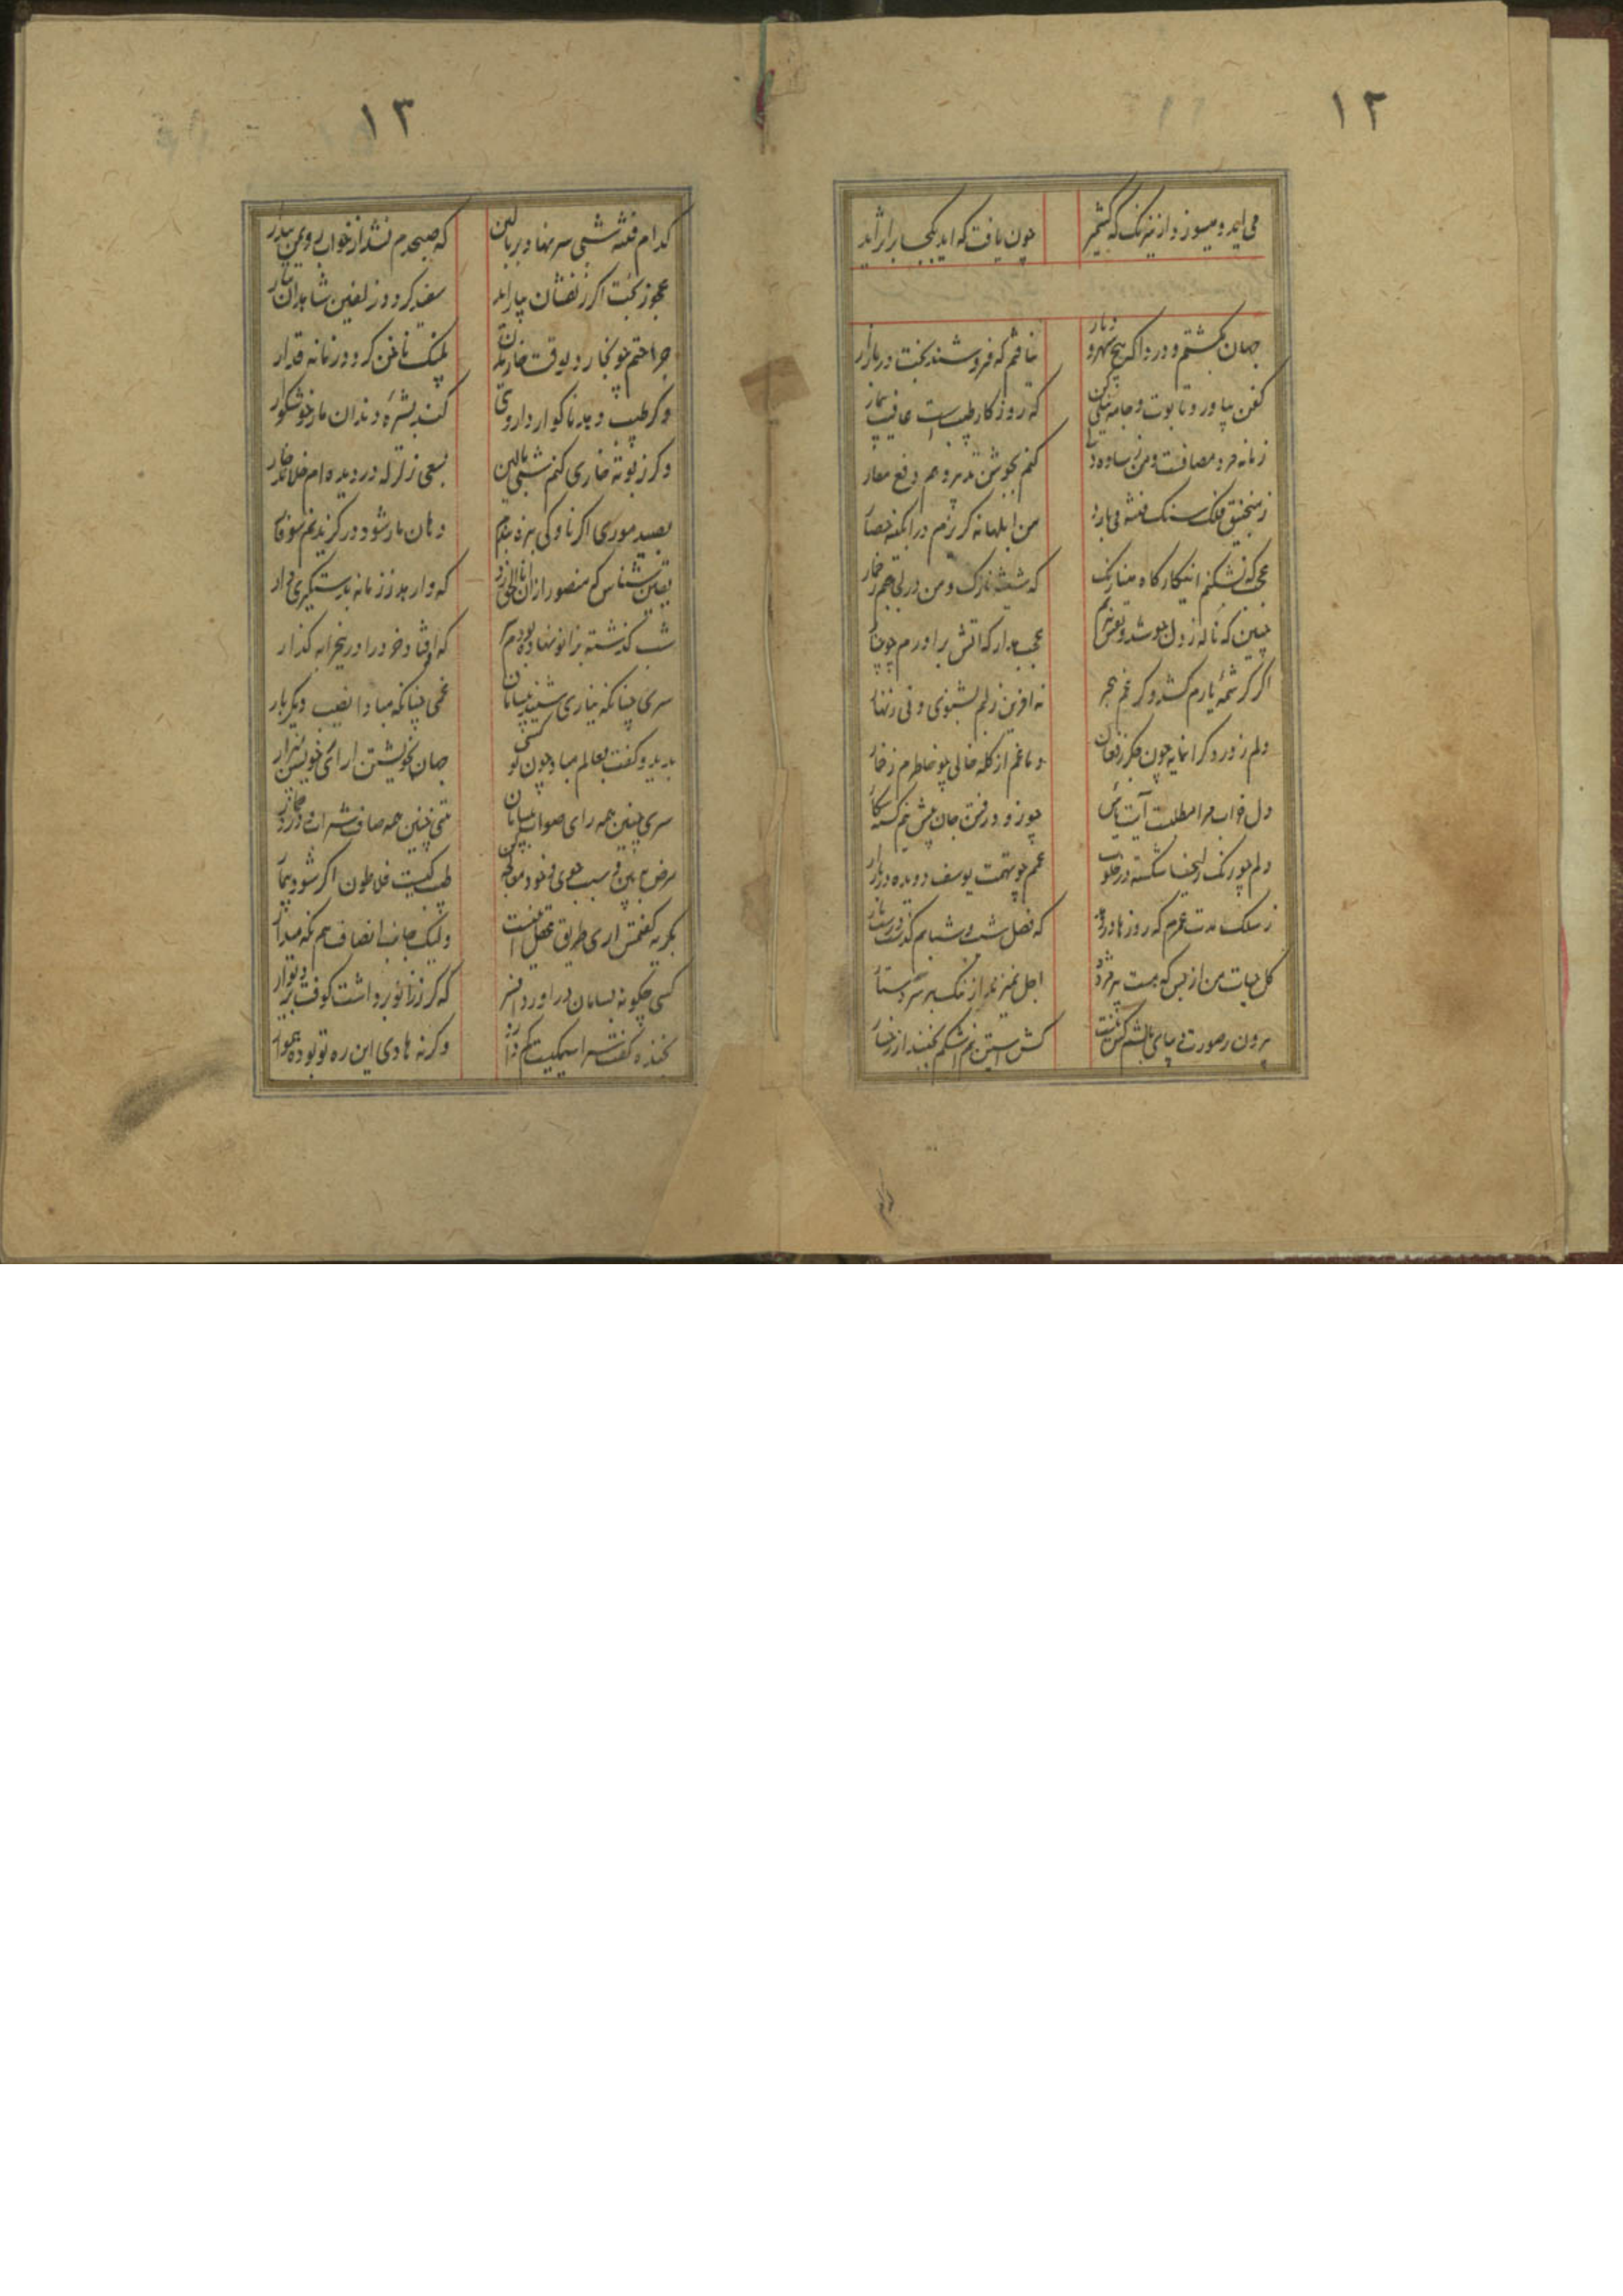 ۱۲
می‌اید و میسوزد از نیرنک که کشمیر چون یافت که اید بکجا بر اثر اید
جهان بکشتم و دردا که هیچ شهر و دیار نیافتم که فروشند بخت در بازار
کفن بیاور و تابوت و جامه نیلی کن که روزکار طبیب است و عافیت بیمار
زمانه مرد مصافست و من ز ساده دلی کنم بجوشن تدبیر و هم دفع مضار
ز منجنیق فلک سنک فتنه می بارد من ابلهانه کریزم در ابکینه حصار
عجب که نشکنم اینکارکاه مینارنک که شیشه نازک و من در لجم خمار
چنین که ناله ز دل جوشد و نفس نزنم عجب مدار که اتش براورم چو چنار
اکر کرشمه یارم کشد و کر غم هجر نه افرین ز لبم بشنوی و نی زنهار
دلم ز درد کرانمایه چون جکر ز فغان دماغم از کله خالی چو خاطرم ز خار
دل خراب مرا مطلب آیت یاس چو زود رفتن جان پیش نیم کشته
دلم چو رنک زلیخا شکسته در خلوت غمم چو تهمت یوسف دویده در بازار
ز سلک مدت عمرم که روزها دزدید که فصل شیب و شبابم کذشت در شب تار
کل حیات من از بس که هست پژمرده اجل نمیزند از ننک بر سر دستار
برون ز صورت دیبای بالشم کس نیست کش استین نم اشکم بچیند از رخسار
۱۳
کدام فتنه شبی سر نهاد بر بالین که صبحدم نشد از خواب بر ویم بیدار
عجوز بخت اکر زلفشان بیاراید سفید کردد زلفین شاهدان تتار
جراحتم چو بخارد بوقت خاریدن پلنک ناخن کردد زمانه غدار
وکر طبیب دهد ناکوار داروئی کند بشره دندان مار خوشکوار
وکر ز بوته خاری کنم شبی بالین بسعی زلزله در دیده‌ام خلاند خار
بصید موری اکر ناوکی بزه بندم دهان مار شود در کزیدنم سوفار
یقین شناس که منصور از ان انا الحق زد که وارهد ز زمانه بدستکیری دار
شب کذشته بزانو نهاده بودم سر که اوفتاد خرد را در ینخرابه کذار
سری چنانکه نیاری شنید بیسامان غمی چنانکه مبادا نصیب دیکر بار
بدید و کفت بعالم مباد چون تو کسی جهان بخویشتن ارای خویشتن بیزار
سری چنین همه رای صواب بیسامان متی چنین همه صاف شراب و درد خمار
مرض ببین و سبب جوی و خود معالجه کن طبیب کیست فلاطون اکر شود بیمار
بکریه کفتمش اری طریق عقل اینست ولیک جانب انصاف هم نکه میدار
کسی چکونه بسامان دراورد افسر که سر ز زانو برداشت کوفت بر دیوار
بخنده کفت وکرنه هادی این ره تو بوده هموار